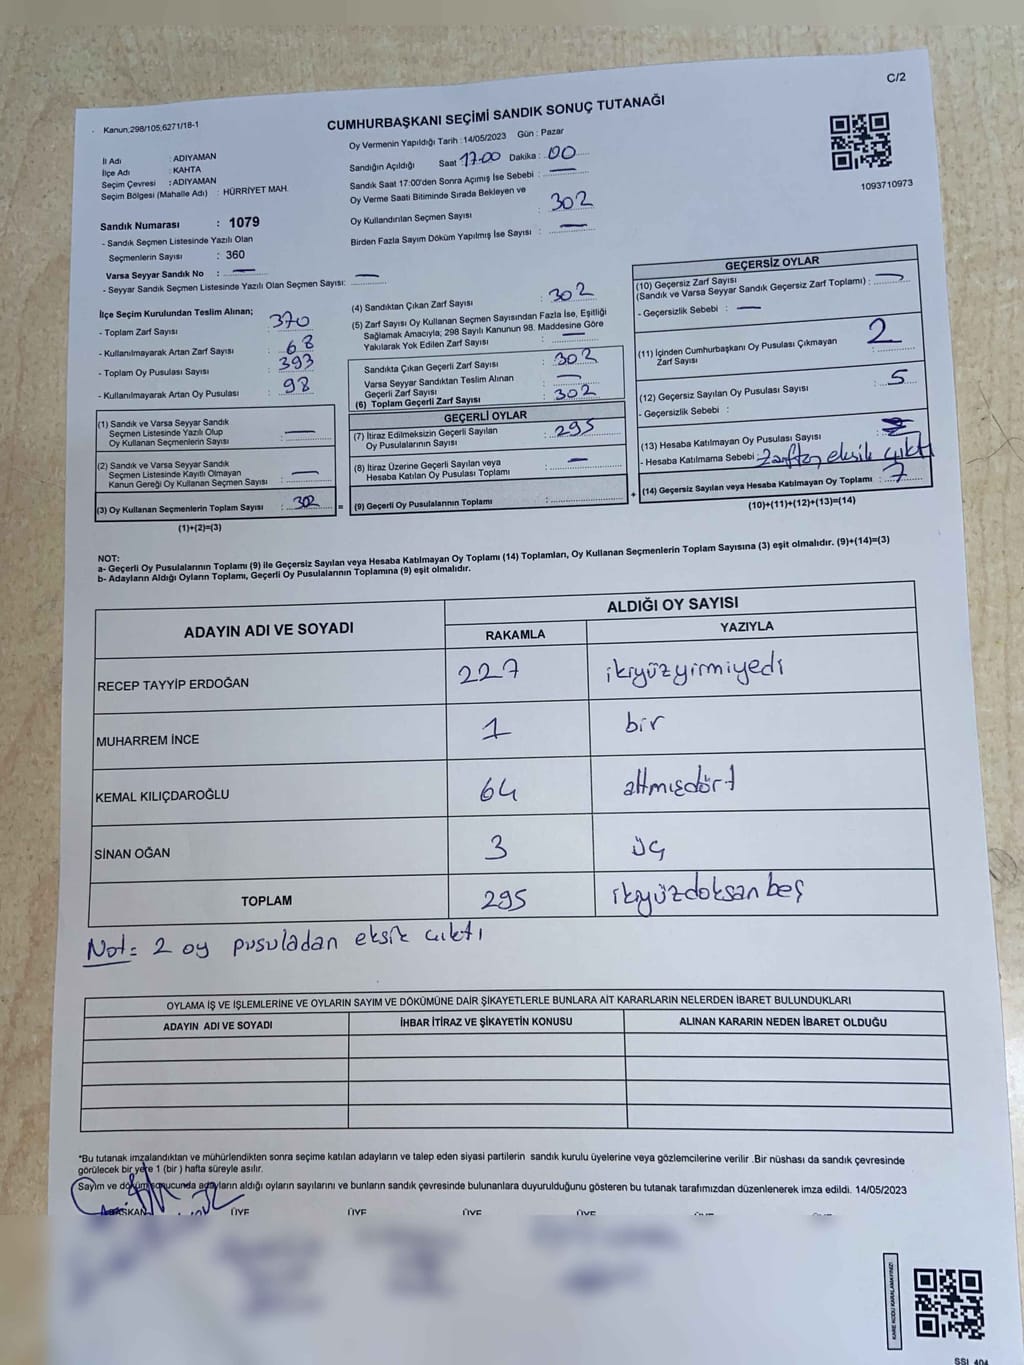 C/2
Kanun.298/105,6271/18-1
CUMHURBAŞKANI SEÇİMİ SANDIK SONUÇ TUTANAĞI
Oy Vermenin Yapıldığı Tarih : 14/05/2023 Gün : Pazar
İl Adı : ADIYAMAN
İlçe Adı : KAHTA
Seçim Çevresi : ADIYAMAN
Seçim Bölgesi (Mahalle Adı) : HÜRRİYET MAH.
Sandık Numarası : 1079
- Sandık Seçmen Listesinde Yazılı Olan
Seçmenlerin Sayısı : 360
Varsa Seyyar Sandık No : —
- Seyyar Sandık Seçmen Listesinde Yazılı Olan Seçmen Sayısı: —
Sandığın Açıldığı Saat 17.00 Dakika : 00
Sandık Saat 17:00'den Sonra Açımış İse Sebebi : —
Oy Verme Saati Bitiminde Sırada Bekleyen ve
Oy Kullandırılan Seçmen Sayısı : 302
Birden Fazla Sayım Döküm Yapılmış İse Sayısı : —
1093710973
İlçe Seçim Kurulundan Teslim Alınan;
- Toplam Zarf Sayısı : 370
- Kullanılmayarak Artan Zarf Sayısı : 68
- Toplam Oy Pusulası Sayısı : 393
- Kullanılmayarak Artan Oy Pusulası : 98
(1) Sandık ve Varsa Seyyar Sandık
Seçmen Listesinde Yazılı Olup
Oy Kullanan Seçmenlerin Sayısı : —
(2) Sandık ve Varsa Seyyar Sandık
Seçmen Listesinde Kayıtlı Olmayan
Kanun Gereği Oy Kullanan Seçmen Sayısı : —
(3) Oy Kullanan Seçmenlerin Toplam Sayısı : 302
(1)+(2)=(3)
(4) Sandıktan Çıkan Zarf Sayısı : 302
(5) Zarf Sayısı Oy Kullanan Seçmen Sayısından Fazla İse, Eşitliği
Sağlamak Amacıyla; 298 Sayılı Kanunun 98. Maddesine Göre
Yakılarak Yok Edilen Zarf Sayısı : —
Sandıkta Çıkan Geçerli Zarf Sayısı : 302
Varsa Seyyar Sandıktan Teslim Alınan
Geçerli Zarf Sayısı : —
(6) Toplam Geçerli Zarf Sayısı : 302
GEÇERLİ OYLAR
(7) İtiraz Edilmeksizin Geçerli Sayılan
Oy Pusulalarının Sayısı : 295
(8) İtiraz Üzerine Geçerli Sayılan veya
Hesaba Katılan Oy Pusulası Toplamı : —
= (9) Geçerli Oy Pusulalarının Toplamı : +
GEÇERSİZ OYLAR
(10) Geçersiz Zarf Sayısı
(Sandık ve Varsa Seyyar Sandık Geçersiz Zarf Toplamı) : —
- Geçersizlik Sebebi : —
(11) İçinden Cumhurbaşkanı Oy Pusulası Çıkmayan
Zarf Sayısı : 2
(12) Geçersiz Sayılan Oy Pusulası Sayısı : 5
- Geçersizlik Sebebi :
(13) Hesaba Katılmayan Oy Pusulası Sayısı :
- Hesaba Katılmama Sebebi : Zarftan eksik çıktı
(14) Geçersiz Sayılan veya Hesaba Katılmayan Oy Toplamı : 7
(10)+(11)+(12)+(13)=(14)
NOT:
a- Geçerli Oy Pusulalarının Toplamı (9) ile Geçersiz Sayılan veya Hesaba Katılmayan Oy Toplamı (14) Toplamları, Oy Kullanan Seçmenlerin Toplam Sayısına (3) eşit olmalıdır. (9)+(14)=(3)
b- Adayların Aldığı Oyların Toplamı, Geçerli Oy Pusulalarının Toplamına (9) eşit olmalıdır.
ADAYIN ADI VE SOYADI ALDIĞI OY SAYISI
RAKAMLA YAZIYLA
RECEP TAYYİP ERDOĞAN 227 ikiyüzyirmiyedi
MUHARREM İNCE 1 bir
KEMAL KILIÇDAROĞLU 64 altmışdört
SİNAN OĞAN 3 üç
TOPLAM 295 ikiyüzdoksan beş
Not= 2 oy pusuladan eksik çıktı
OYLAMA İŞ VE İŞLEMLERİNE VE OYLARIN SAYIM VE DÖKÜMÜNE DAİR ŞİKAYETLERLE BUNLARA AİT KARARLARIN NELERDEN İBARET BULUNDUKLARI
ADAYIN ADI VE SOYADI İHBAR İTİRAZ VE ŞİKAYETİN KONUSU ALINAN KARARIN NEDEN İBARET OLDUĞU
*Bu tutanak imzalandıktan ve mühürlendikten sonra seçime katılan adayların ve talep eden siyasi partilerin sandık kurulu üyelerine veya gözlemcilerine verilir .Bir nüshası da sandık çevresinde
görülecek bir yere 1 (bir ) hafta süreyle asılır.
Sayım ve döküm sonucunda adayların aldığı oyların sayılarını ve bunların sandık çevresinde bulunanlara duyurulduğunu gösteren bu tutanak tarafımızdan düzenlenerek imza edildi. 14/05/2023
BAŞKAN ÜYE ÜYE ÜYE ÜYE
KARE KODU KARALAMAYINIZ!